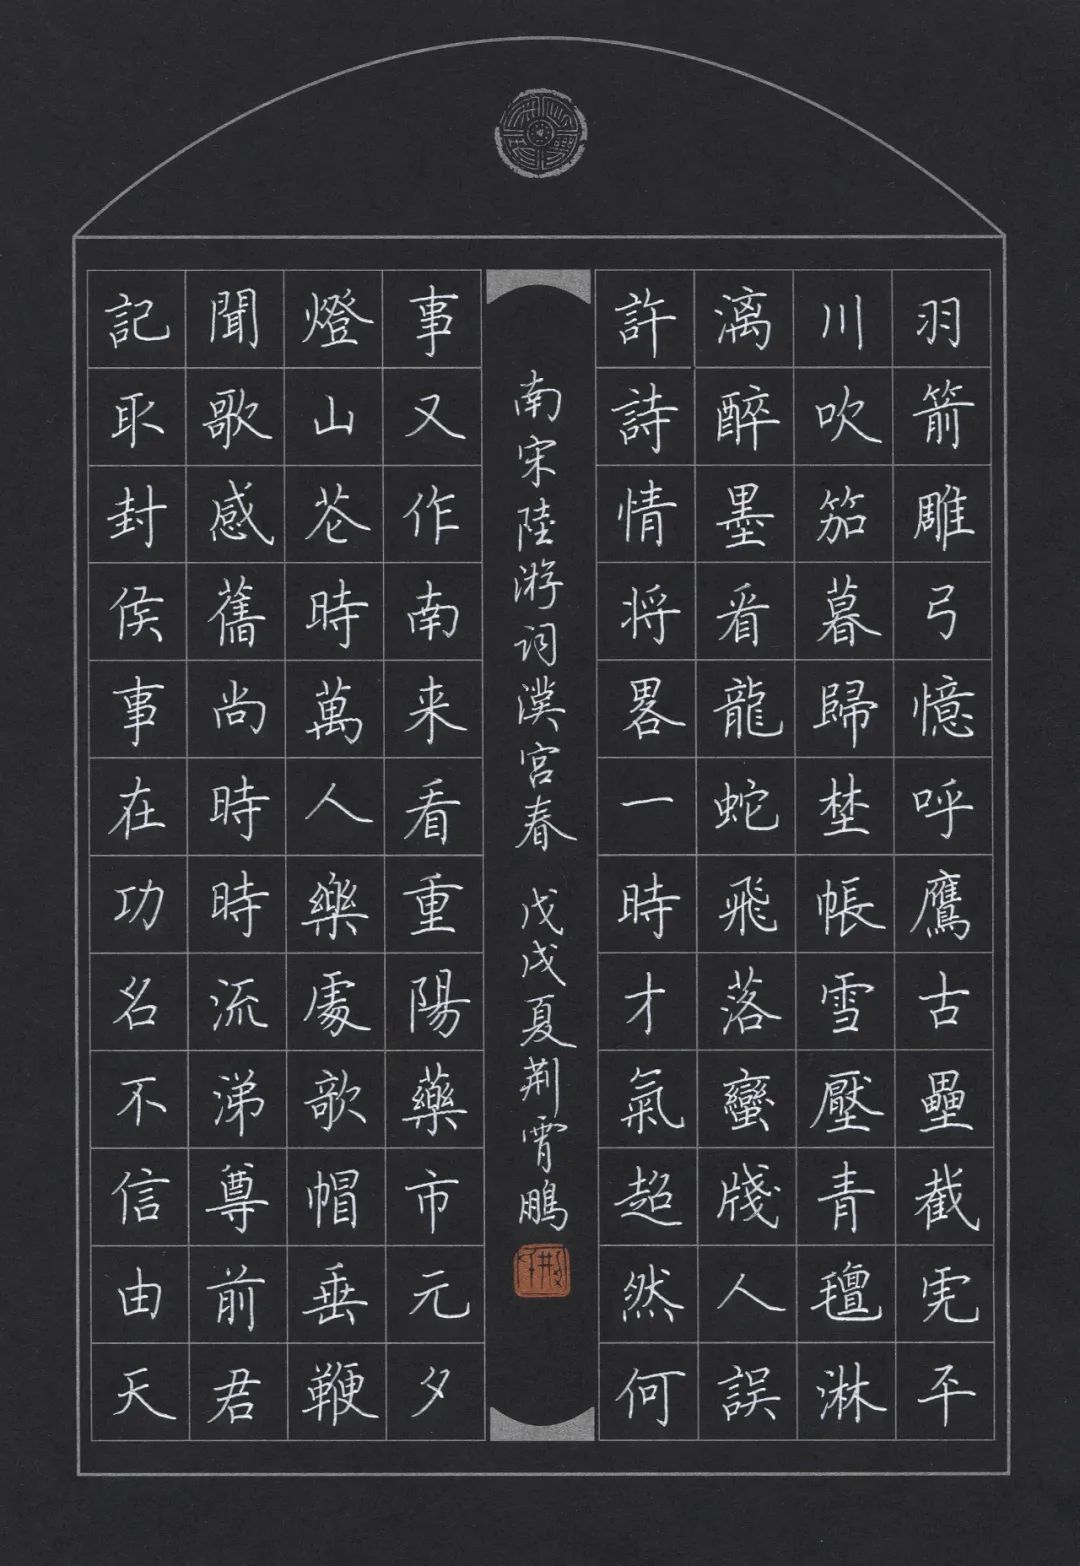 羽箭雕弓憶呼鷹古壘截虎平
川吹笳暮歸埜帳雪壓青氊淋
漓醉墨看龍蛇飛落蠻牋人誤
許詩情将畧一時才氣超然何
事又作南来看重陽藥市元夕
燈山花時萬人樂處欹帽垂鞭
聞歌感舊尚時時流涕尊前君
記取封侯事在功名不信由天
南宋陸游词漢宮春 戊戌夏荆霄鵬